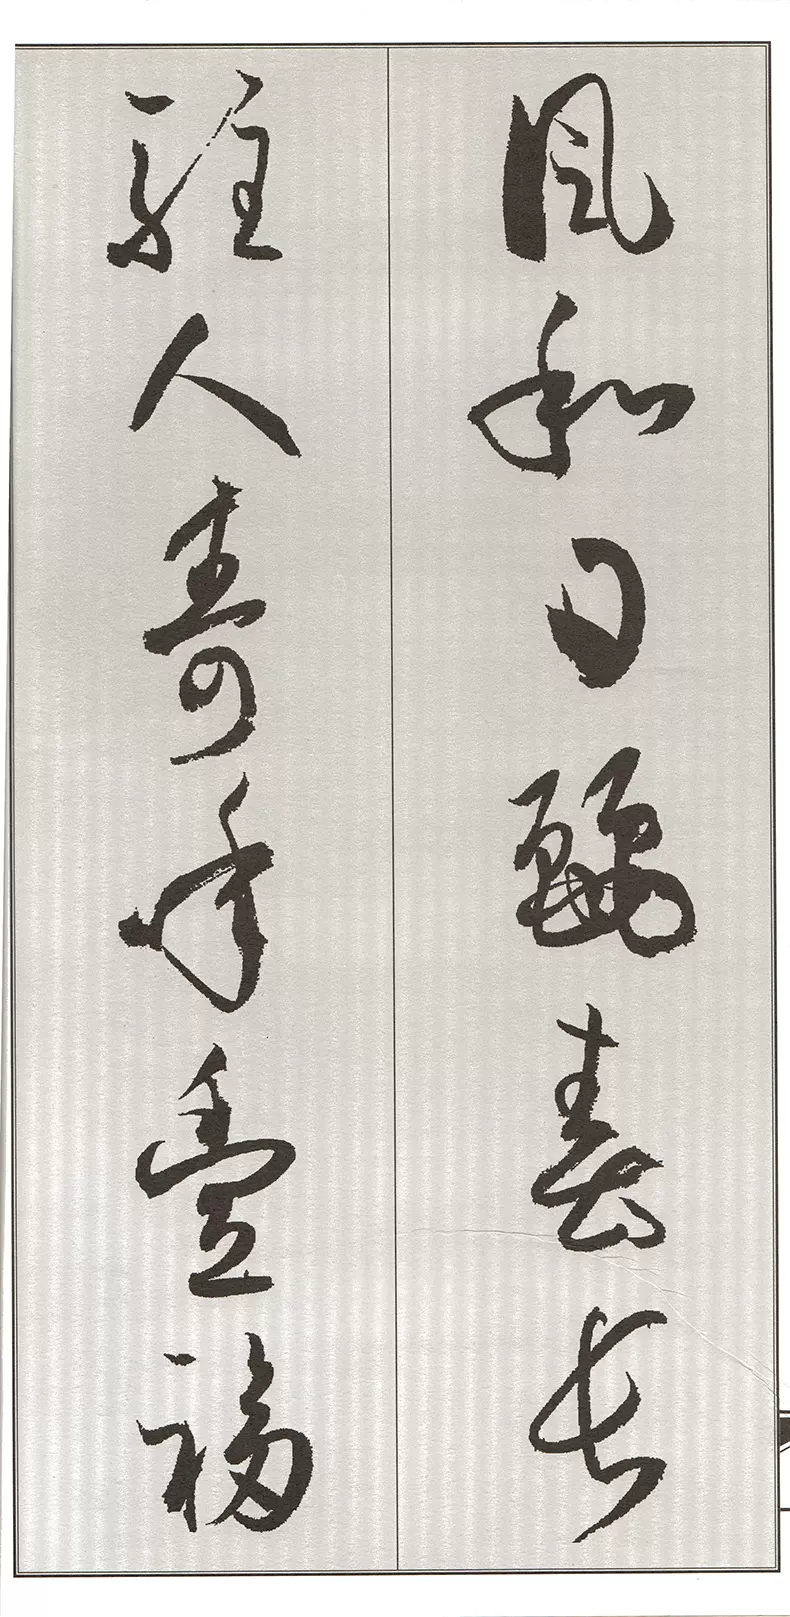 風和日麗春長
駐人壽年豐福